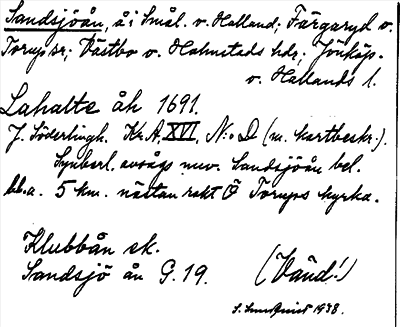 Sandsjöån, å i Smål. o. Halland; Färgaryd o.
Torup sr; Västbo o. Halmstads hdr; Jönköp.
o. Hallands l.
Lahalte åh 1691.
J. Söderlingh. Kr.A. XVI, N:o D (m. kartbeskr.).
Synberl. avsågs nuv. Sandsjöån bel.
bl.a. 5 km. nästan rakt Ö Torups kyrka.
Klubbån ek.
Sandsjö ån G.19.
(Vänd!)
S. Sundquist 1938.